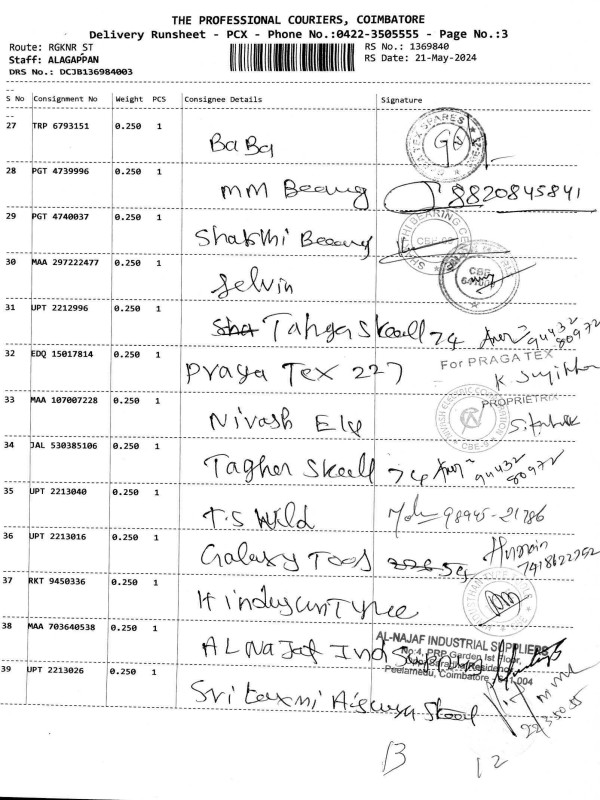 THE PROFESSIONAL COURIERS, COIMBATORE
Delivery Runsheet - PCX - Phone No.:0422-3505555 - Page No.:3
Route: RGKNR ST RS No.: 1369840
Staff: ALAGAPPAN RS Date: 21-May-2024
DRS No.: DCJB136984003
S No Consignment No Weight PCS Consignee Details Signature
27 TRP 6793151 0.250 1 BaBa
28 PGT 4739996 0.250 1 MM Beaung 8820845841
29 PGT 4740037 0.250 1 Shakthi Beeaung
30 MAA 297222477 0.250 1 Selvin
31 UPT 2212996 0.250 1 Tahga Skeall 74 94432 80972
32 EDQ 15017814 0.250 1 Praga Tex 227
For PRAGA TEX
K Sujitha
PROPRIETRIX
33 MAA 107007228 0.250 1 Nivash Ele
34 JAL 530385106 0.250 1 Tagher Skeall 74 94432 80972
35 UPT 2213040 0.250 1 T.S Wild 98945-21786
36 UPT 2213016 0.250 1 Galaxy Toos Hussain
37 RKT 9450336 0.250 1 Hindusun Tyree
38 MAA 703640538 0.250 1 AL Najaf Ind
AL-NAJAF INDUSTRIAL SUPPLIERS
No:4, PRP Garden Ist Floor,
Residency
Peelamedu, Coimbatore - 641 004
39 UPT 2213026 0.250 1 Sri Laxmi Aiswrya Steel
B 12